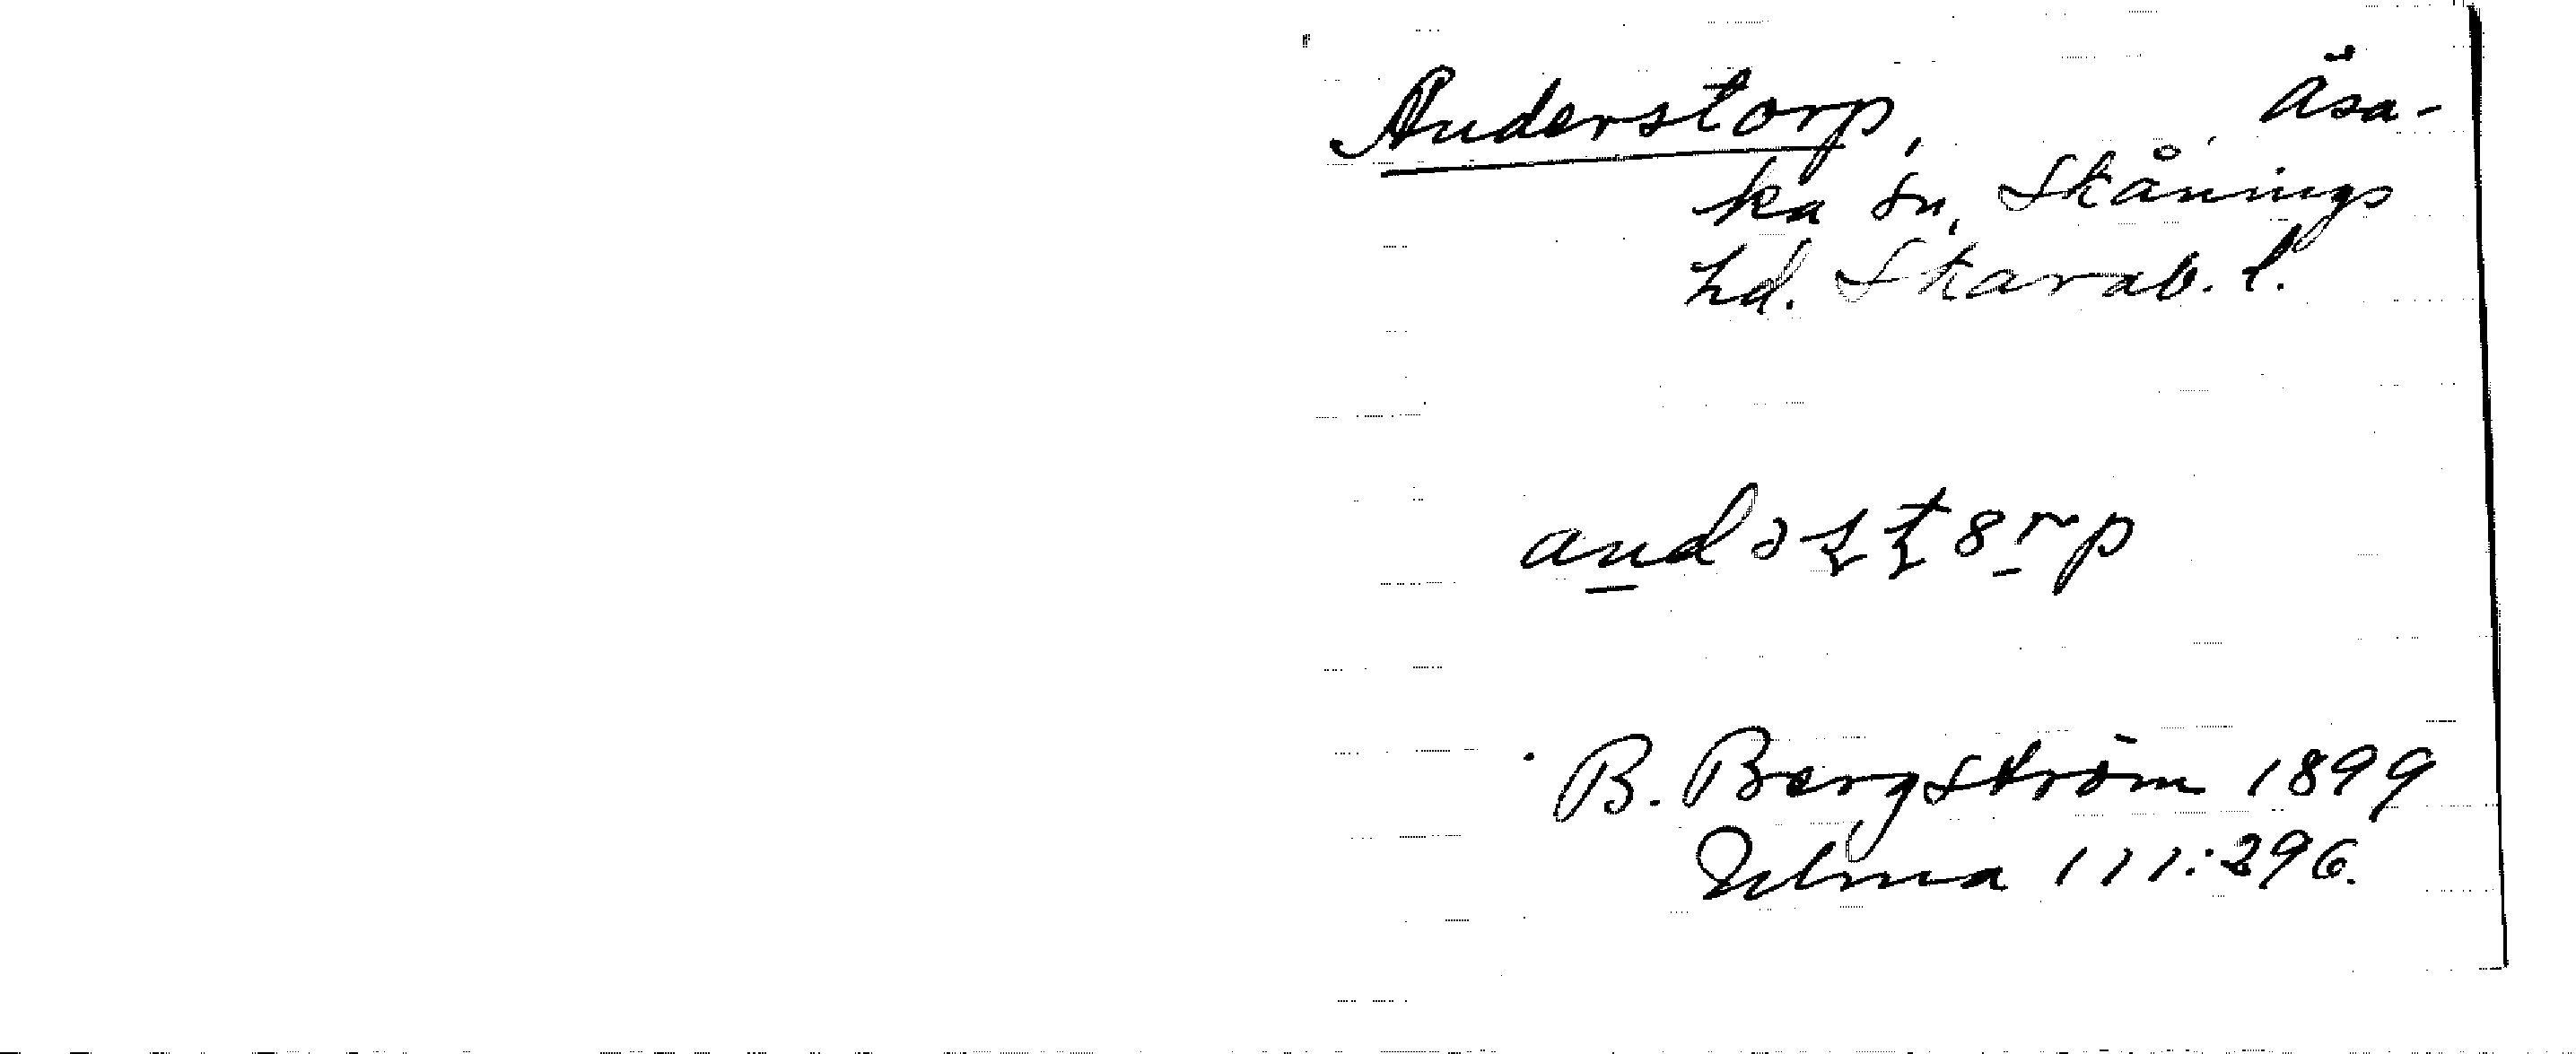 Anderstorp, Åsa-
ka sn, Skånings
hd. Skarab. l.
B. Bergström 1899
111:296.